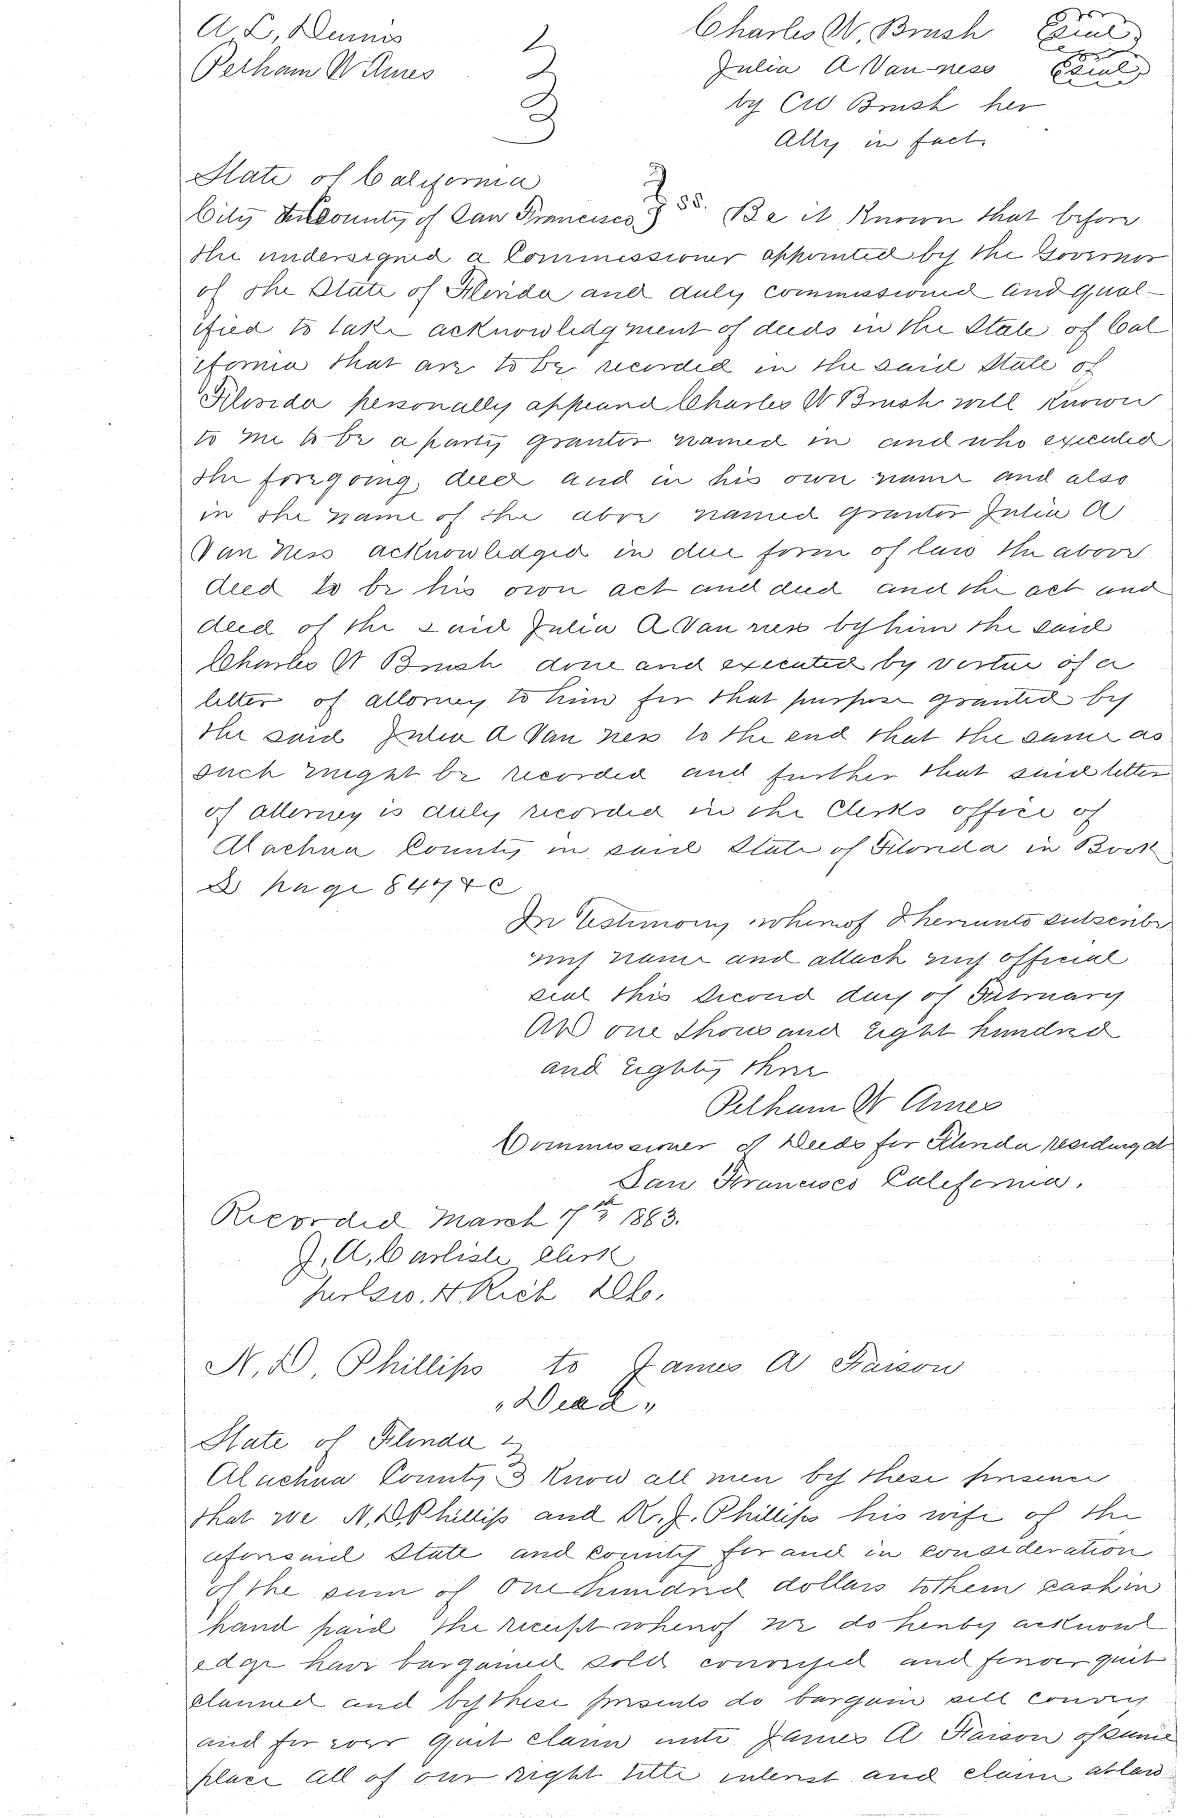 A. L. Dennis Charles W. Brush (Seal)
Pelham W Ames Julia A Van-ness (Seal)
by CW Brush her
Atty in fact.
State of California
City & County of San Francisco ss. Be it Known that before
the undersigned a Commissioner appointed by the Governor
of the State of Florida and duly commissioned and qual-
ified to take acknowledgment of deeds in the State of Cal
ifornia that are to be recorded in the said State of
Florida personally appeared Charles W Brush well Known
to me to be a party grantor named in and who executed
the foregoing deed and in his own name and also
in the name of the above named grantor Julia A
Van Ness acknowledged in due form of law the above
deed to be his own act and deed and the act and
deed of the said Julia A Van ness by him the said
Charles W Brush done and executed by vertue of a
letter of attorney to him for that purpose granted by
the said Julia A Van Ness to the end that the same as
such might be recorded and further that said letter
of attorney is duly recorded in the Clerks office of
Alachua County in said State of Florida in Book
page 847 &c
In Testimony whereof I hereunto subscribe
my name and attach my official
seal this Second day of February
AD one thousand Eight hundred
and Eighty three
Pelham W Ames
Commissioner of Deeds for Florida residing at
San Francisco California.
Recorded March 7th 1883.
J. A. Carlisle Clerk
H. Rich D.C.
N. D. Phillips to James A Faison
"Deed"
State of Florida
Alachua County Know all men by these presence
that we N. D. Phillips and R. J. Phillips his wife of the
aforesaid State and county for and in consideration
of the sum of One hundred dollars to them cash in
hand paid the receipt whereof we do hereby acknowl
edge have bargained sold conveyed and forever quit
claimed and by these presents do bargain sell convey
and for ever quit claim unto James A Faison of same
place all of our right title interest and claim at law